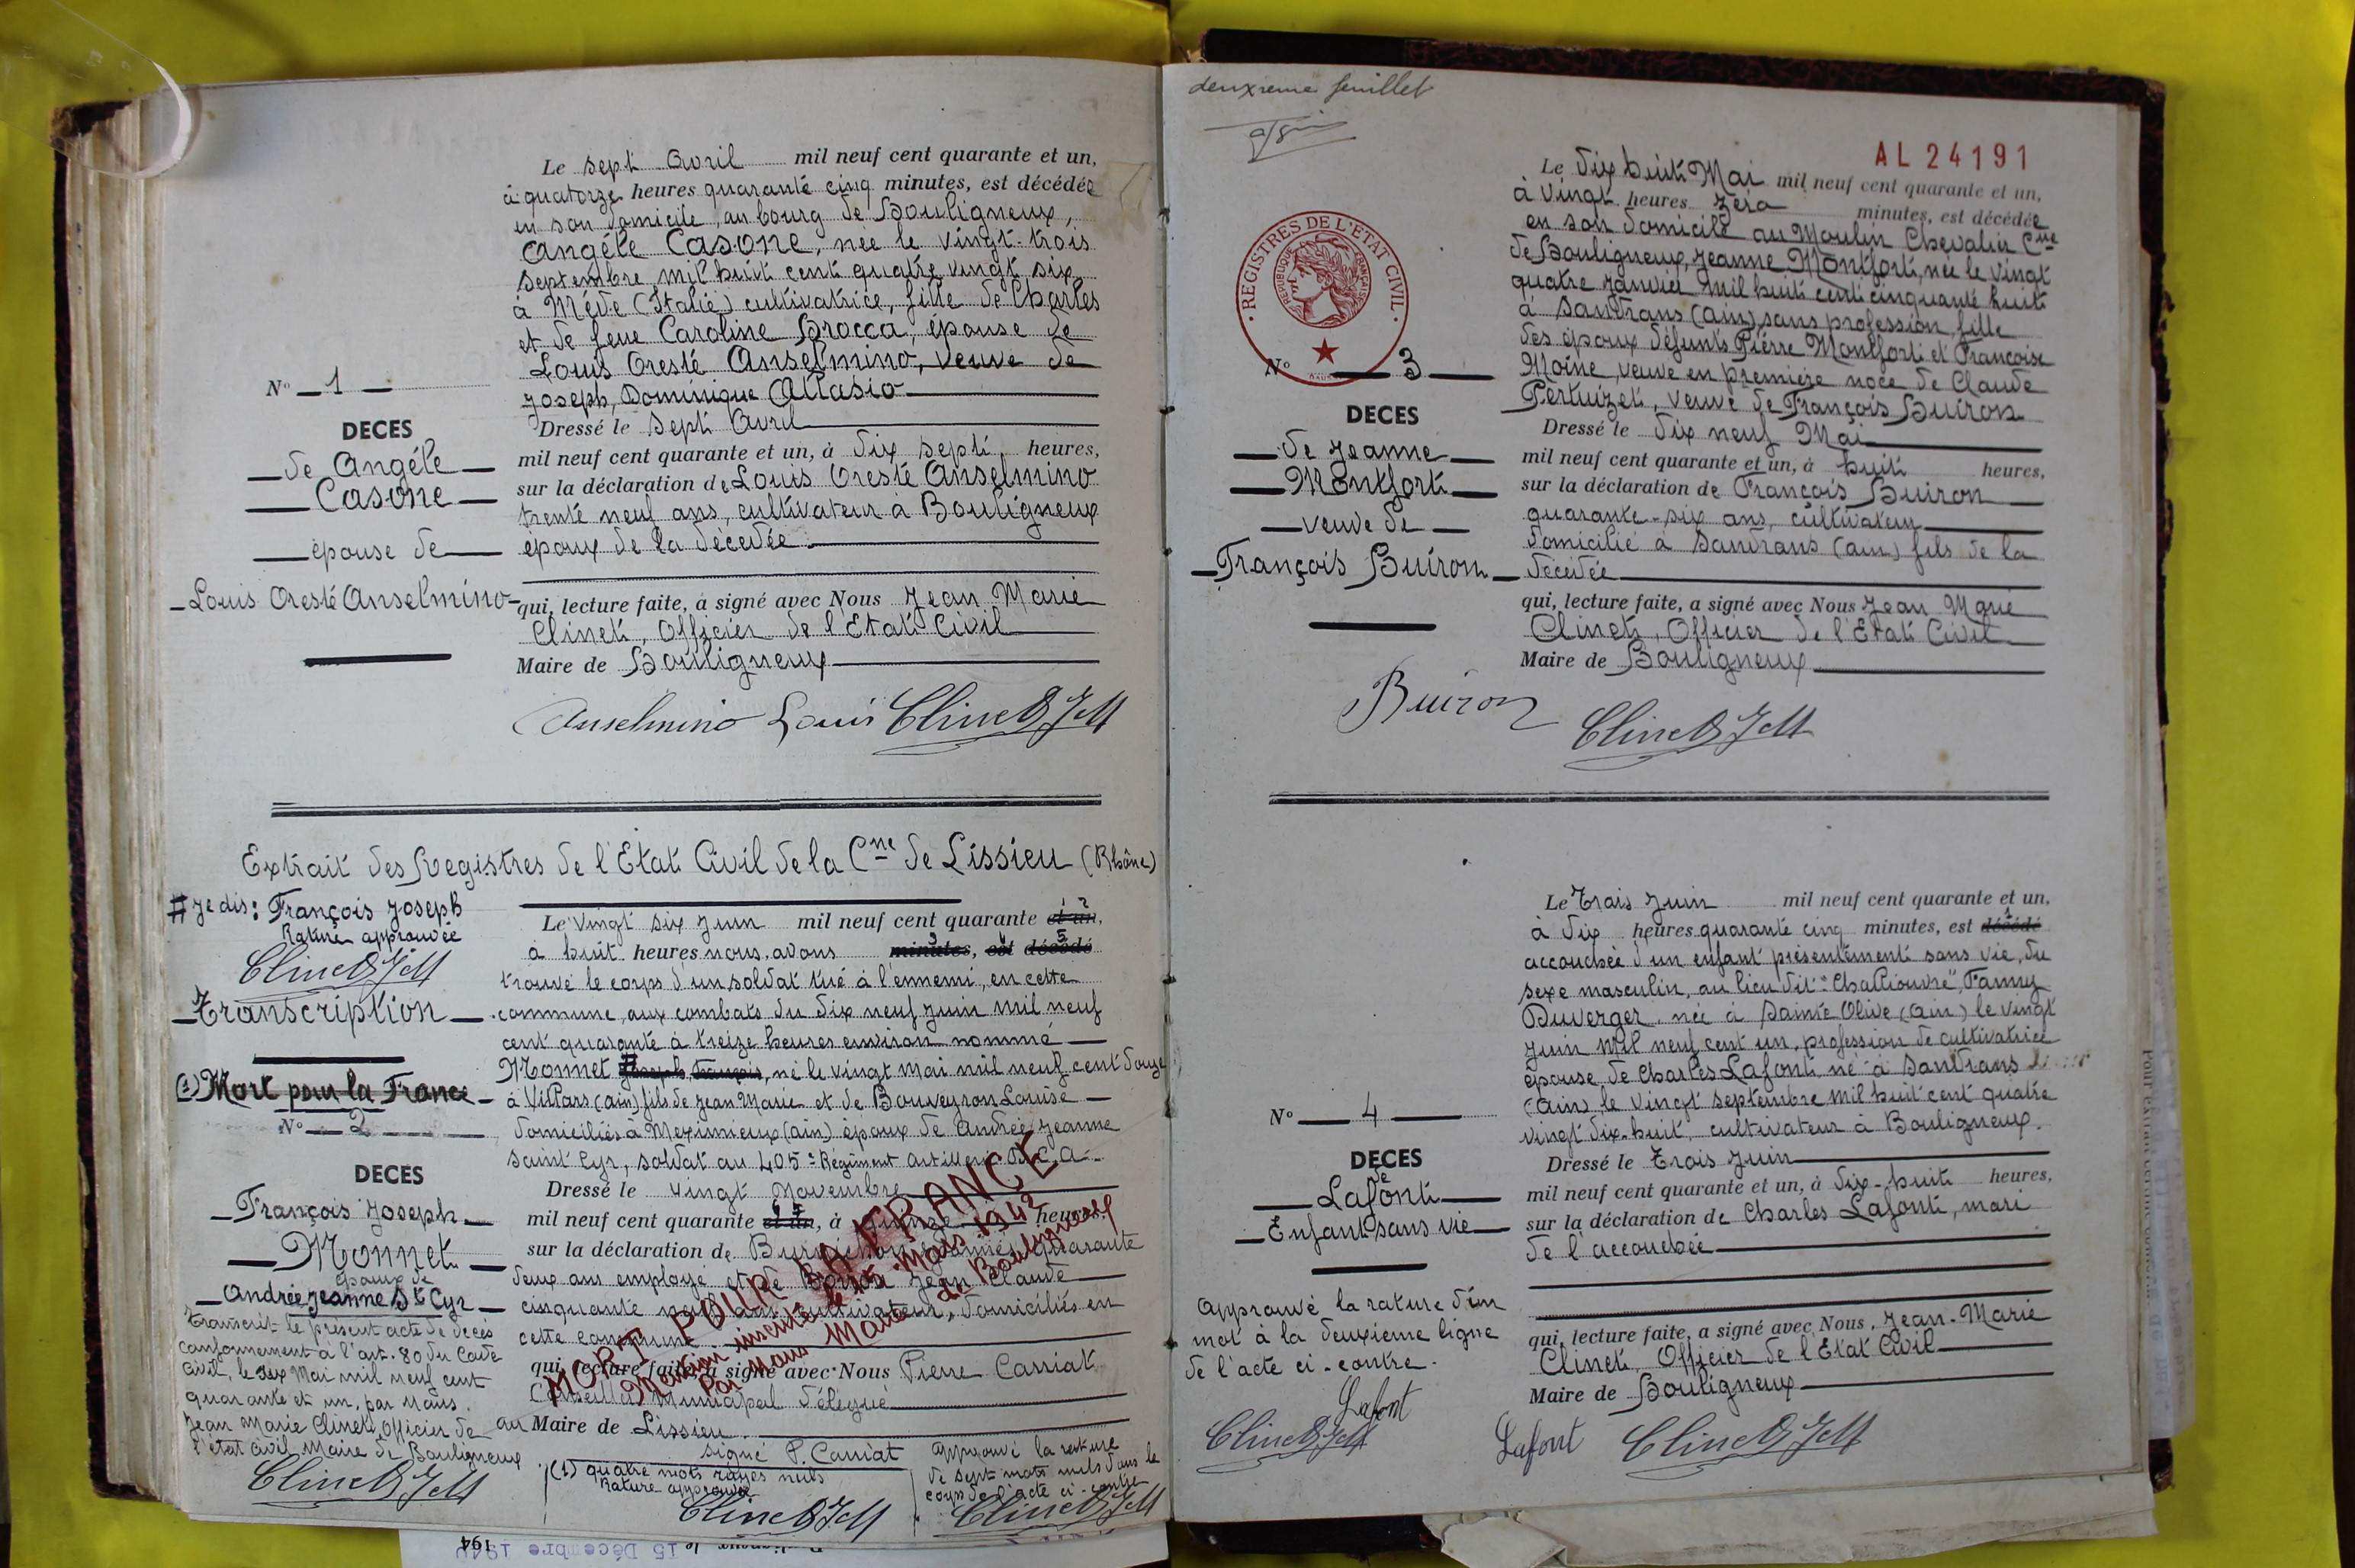 Le sept Avril mil neuf cent quarante et un,
à quatorze heures quarante cinq minutes, est décédée
en son domicile, au bourg de Bouligneux,
Angéle Casone, née le vingt-trois
Septembre mil huit cent quatre vingt six
à Méde (Italie) cultivatrice, fille de Charles
et de feue Caroline Brocca, épouse de
Louis Oresté Anselmino, veuve de
Joseph, Dominique Allasio
Nº 1
DECES
de Angéle
Casone
épouse de
Louis Oresté Anselmino
Dressé le sept Avril
mil neuf cent quarante et un, à dix sept heures,
sur la déclaration de Louis Oresté Anselmino
trente neuf ans, cultivateur à Bouligneux
époux de la décedée.
qui, lecture faite, a signé avec Nous Jean Marie
Clinet, Officier de l'Etat Civil
Maire de Bouligneux
Anselmino Louis Clinet JM
Extrait des Registres de l'Etat Civil de la Cne de Lissieu (Rhône)
# Je dis: François Joseph
Rature approuvée
Clinet JM
Transcription
(1) Mort pour la France
Nº 2
DECES
François Joseph
Monnet
époux de
Andrée Jeanne St Cyr
Transcrit le présent acte de décès
conformement à l'art. 80 du Code
Civil, le dix Mai mil neuf cent
quarante et un, par Nous.
Jean Marie Clinet, Officier de
l'état civil Maire de Bouligneux
Clinet JM
Le vingt six Juin mil neuf cent quarante et un,
à huit heures nous avons minutes, est décédé
trouvé le corps d'un soldat tué à l'ennemi, en cette
commune, aux combats du dix neuf juin mil neuf
cent quarante à treize heures environ nommé
Monnet # Joseph, François, né le vingt mai mil neuf cent douze
à Villars (ain) fils de Jean Marie et de Bouveyron Louise
domiciliés à Meximieux (ain) époux de Andrée Jeanne
Saint Cyr, soldat au 405e Régiment artillerie D.C.A.
Dressé le vingt Novembre
mil neuf cent quarante et un, à quinze heures,
sur la déclaration de quarante
deux ans employé et de Jean Claude
cinquante neuf ans cultivateur, domiciliés en
cette commune
qui, lecture faite, a signé avec Nous Pierre Carriat
Conseiller Municipal délégué
au Maire de Lissieu.
signé P. Carriat
MORT POUR LA FRANCE
Mention inscrite le Mars 1942
Par Nous Maire de Bouligneux
(1) quatre mots rayés nuls
Rature approuvée
Clinet JM
Approuvé la rature
de sept mots nuls dans le
corps de l'acte ci-contre
Clinet JM
15 Décembre 194
194
deuxieme feuillet
AL 24191
REGISTRES DE L'ETAT CIVIL
REPUBLIQUE FRANÇAISE
Le Dix huit Mai mil neuf cent quarante et un,
à vingt heures zéro minutes, est décédée
en son domicile au Moulin Chevalin Cne
de Bouligneux, Jeanne Montfort, née le vingt
quatre Janvier mil huit cent cinquante huit
à Sandrans (Ain) sans profession, fille
des époux défunts Pierre Montfort et Françoise
Moine, veuve en premiere noce de Claude
Pertuizet, veuve de François Buiron
Nº 3
DECES
de Jeanne
Montfort
veuve de
François Buiron
Dressé le dix neuf Mai
mil neuf cent quarante et un, à huit heures,
sur la déclaration de François Buiron
quarante-six ans, cultivateur
domicilié à Sandrans (ain) fils de la
décedée
qui, lecture faite, a signé avec Nous Jean Marie
Clinet, Officier de l'Etat Civil
Maire de Bouligneux
Buiron Clinet JM
Le Trois Juin mil neuf cent quarante et un,
à dix heures quarante cinq minutes, est décédé
accouchée d'un enfant présentement sans vie, du
sexe masculin, au lieu dit "Challiouvre", Fanny
Duverger, née à Sainte Olive (ain) le vingt
juin mil neuf cent un, profession de cultivatrice
épouse de Charles Lafont, né à Sandrans
(Ain) le vingt septembre mil huit cent quatre
vingt dix-huit, cultivateur à Bouligneux.
Nº 4
DECES
de
Lafont
Enfant sans vie
Dressé le Trois Juin
mil neuf cent quarante et un, à dix-huit heures,
sur la déclaration de Charles Lafont, mari
de l'accouchée
qui, lecture faite, a signé avec Nous, Jean-Marie
Clinet, Officier de l'Etat Civil
Maire de Bouligneux
Approuvé la rature d'un
mot à la deuxieme ligne
de l'acte ci-contre.
Lafont
Clinet JM
Lafont Clinet JM